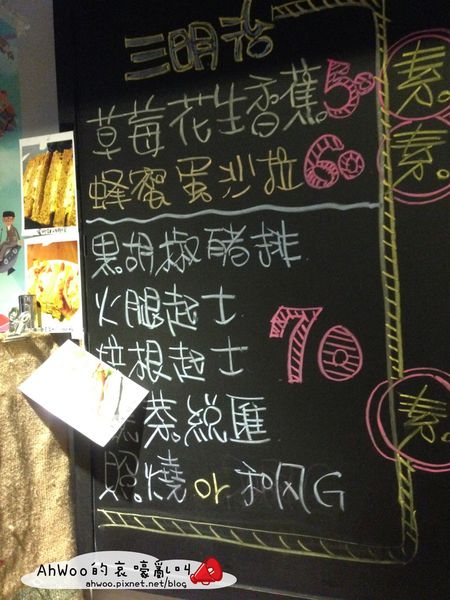 三明治
草莓花生香蕉50 素。
蜂蜜蛋沙拉60 素。
黑胡椒豬排
火腿起士
培根起士 70
蔬菜總匯 素。
照燒or和風G
AhWoo的哀嚎亂叫
ahwoo.pixnet.net/blog